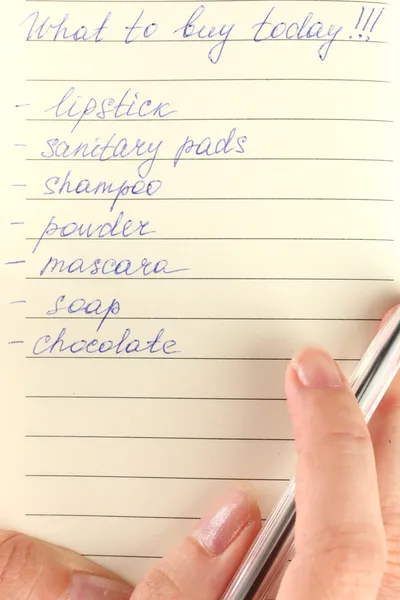 What to buy today!!!
- lipstick
- sanitary pads
- shampoo
- powder
- mascara
- soap
- chocolate